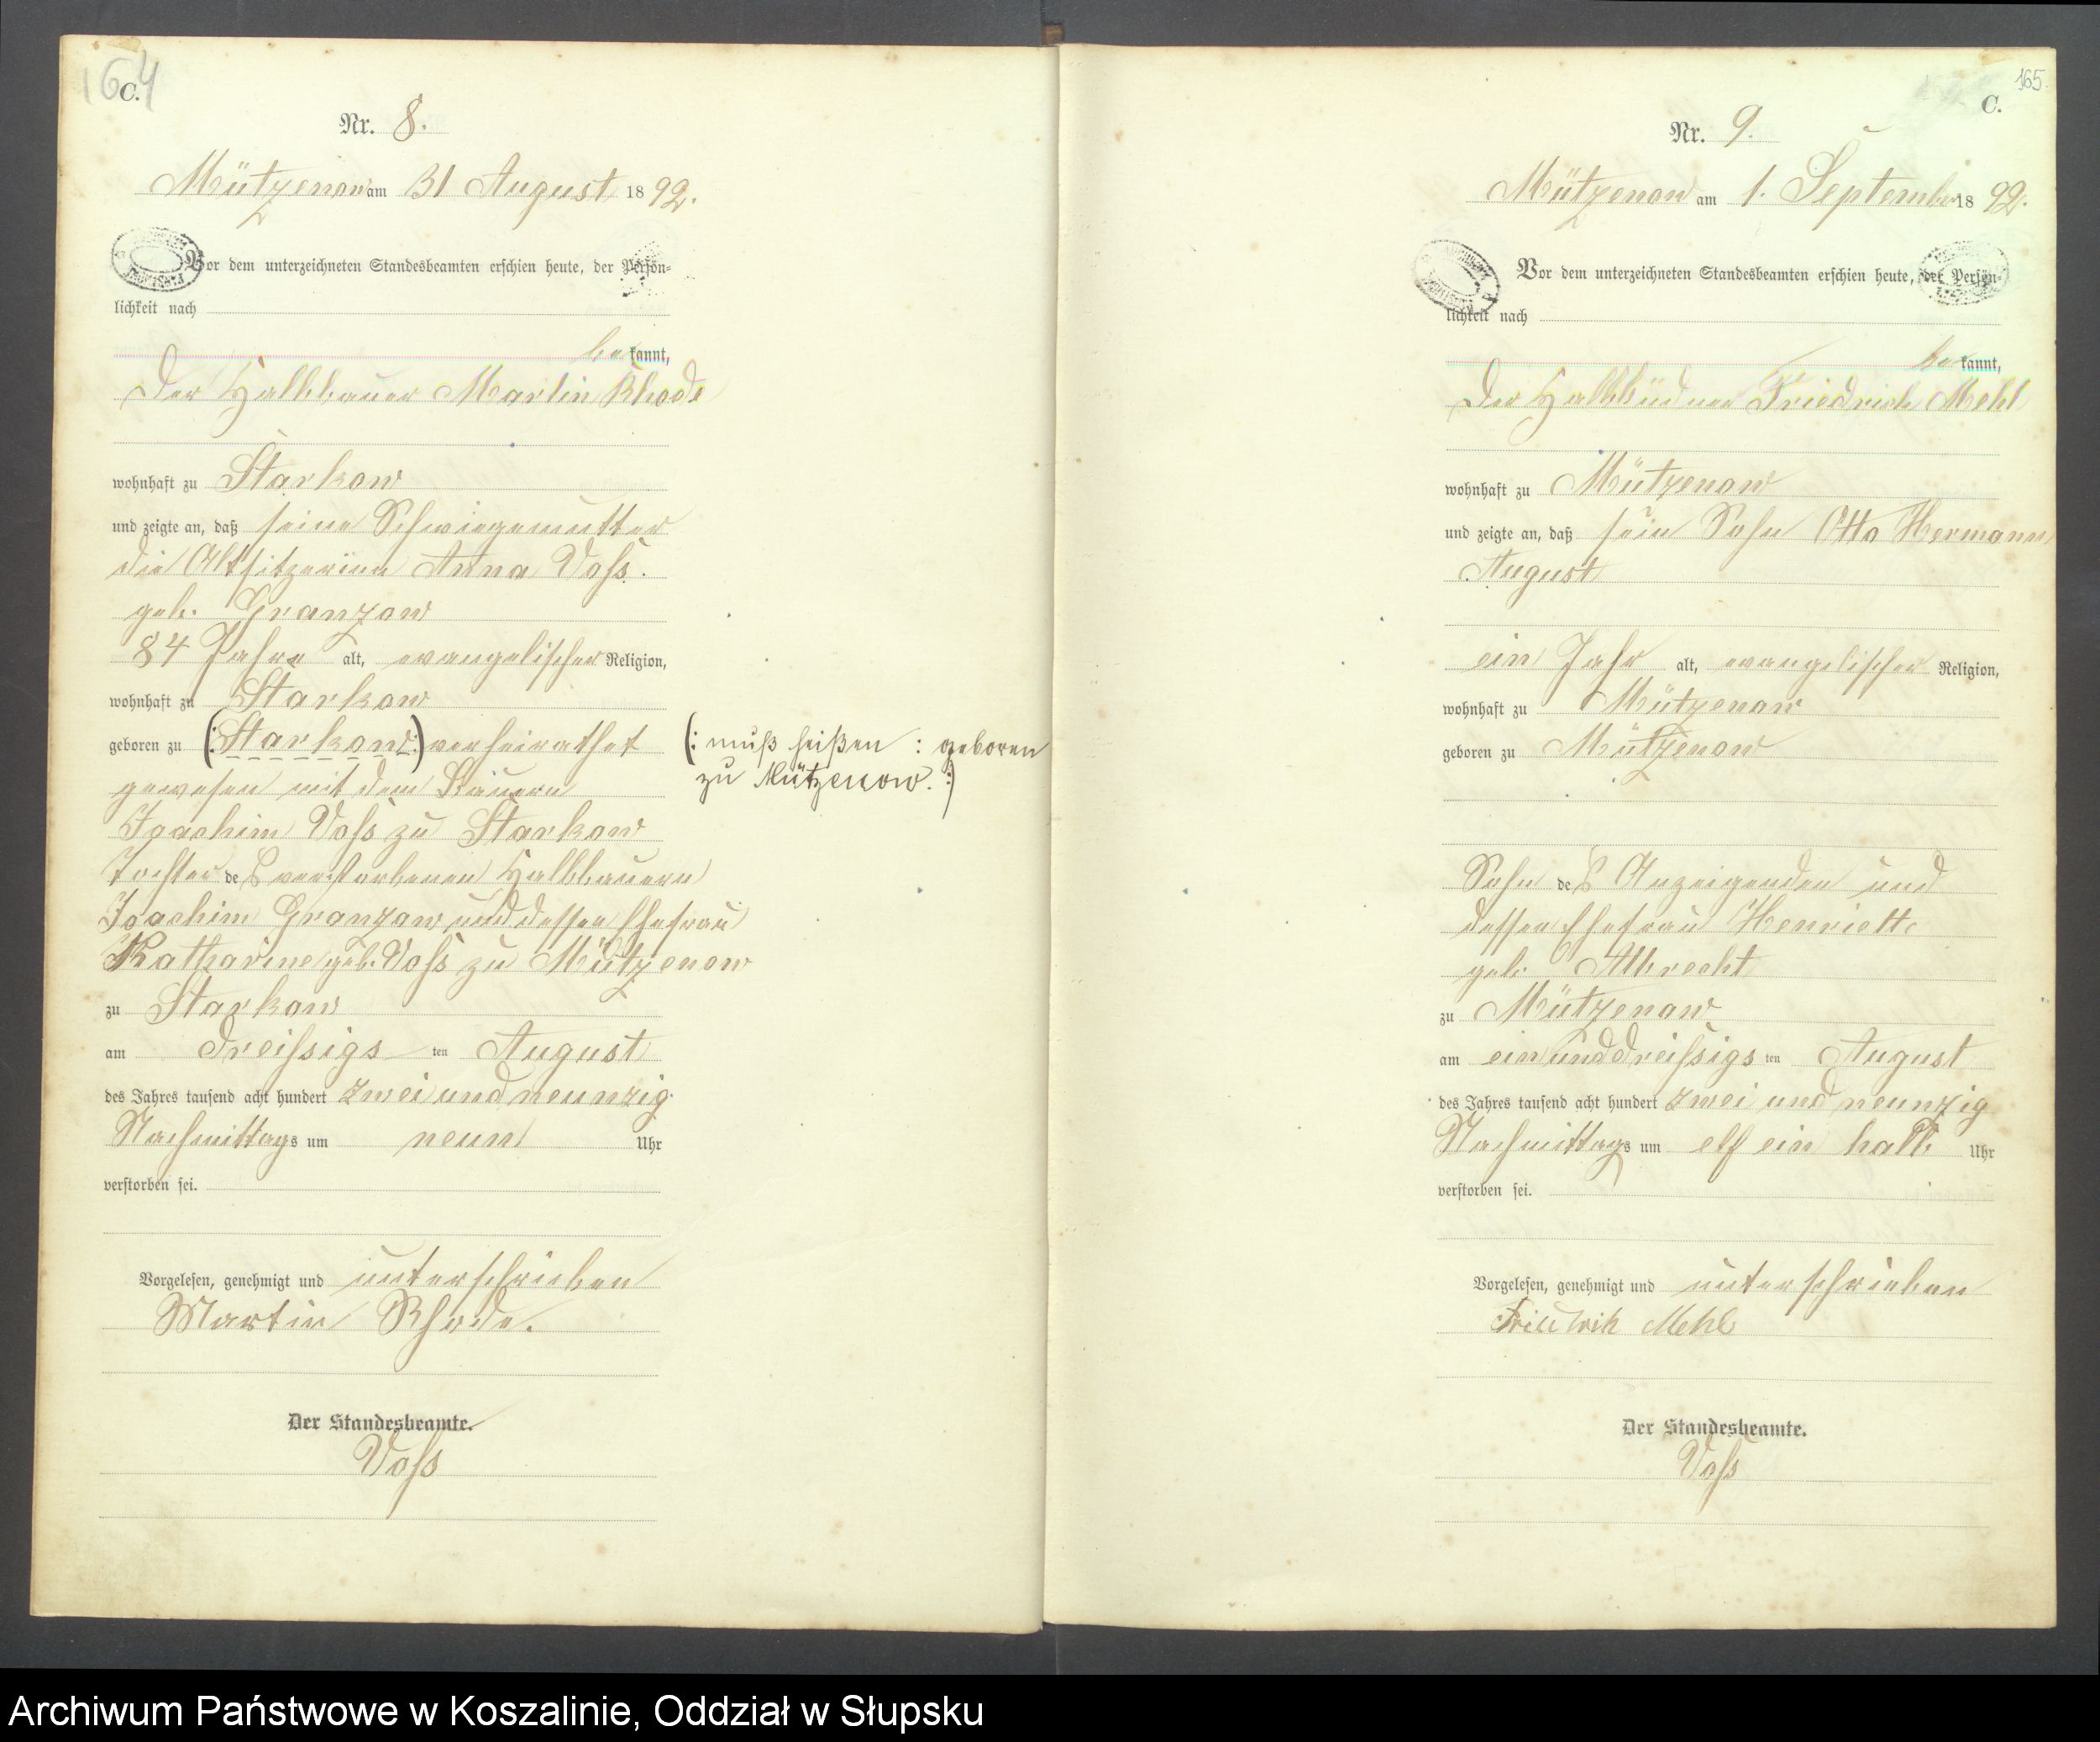 164
C.
Nr. 8.
Mützenow am 31 August 1892.
Vor dem unterzeichneten Standesbeamten erschien heute, der Persön-
lichkeit nach
bekannt,
der Halbbauer Martin Rhode
wohnhaft zu Starkow
und zeigte an, daß seine Schwiegemutter
die Altsitzerinn Anna Voß.
geb. Granzow
84 Jahre alt, evangelischer Religion,
wohnhaft zu Starkow
geboren zu (: Starkow :) verheirathet
gewesen mit dem Bauern
Joachim Voß zu Starkow
Tochter des verstorbenen Halbbauern
Joachim Granzow und dessen Ehefrau
Katharine geb. Voß zu Mützenow
zu Starkow
am dreißigsten August
des Jahres tausend acht hundert zwei und neunzig
Nachmittags um neun Uhr
verstorben sei.
Vorgelesen, genehmigt und unterschrieben
Martin Rhode.
Der Standesbeamte.
Voß
(: muß heißen : geboren
zu Mützenow. :)
165.
C.
Nr. 9.
Mützenow am 1. September 1892.
Vor dem unterzeichneten Standesbeamten erschien heute, der Persön-
lichkeit nach
bekannt,
der Halbbüdner Friedrich Mehl
wohnhaft zu Mützenow
und zeigte an, daß sein Sohn Otto Hermann
August
ein Jahr alt, evangelischer Religion,
wohnhaft zu Mützenow
geboren zu Mützenow
Sohn des Anzeigenden und
dessen Ehefrau Henriette
geb. Albrecht
zu Mützenow
am einunddreißigsten August
des Jahres tausend acht hundert zwei und neunzig
Nachmittags um elf ein halb Uhr
verstorben sei.
Vorgelesen, genehmigt und unterschrieben
Friedrich Mehl
Der Standesbeamte.
Voß
Archiwum Państwowe w Koszalinie, Oddział w Słupsku